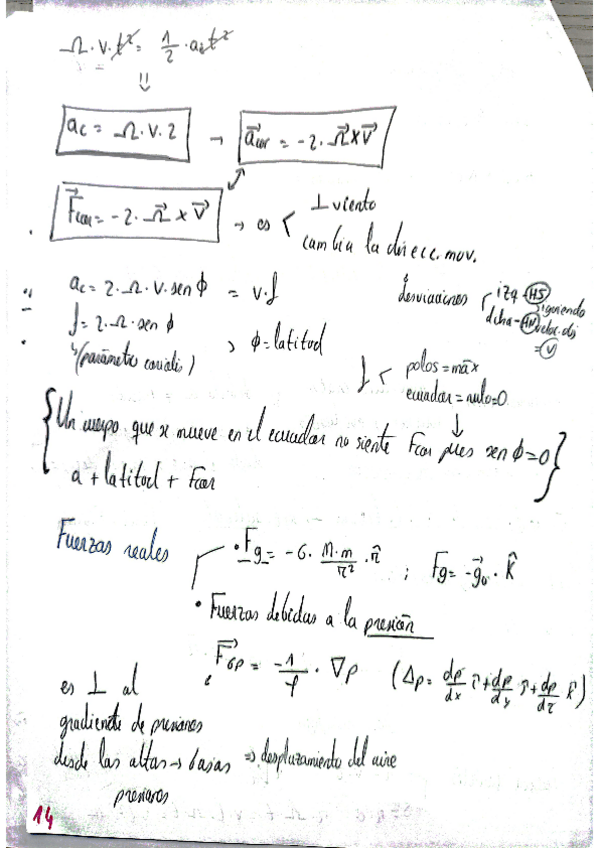 Ω · v · t² = 1/2 · a_c t²
⇓
a_c = Ω · v · 2 → a⃗_cor = -2 · Ω⃗ x v⃗
F⃗_cor = -2 · Ω⃗ x v⃗ → es < ⊥ viento
cambia la direcc. mov.
a_c = 2 · Ω · v · sen ϕ = v · f
f = 2 · Ω · sen ϕ
↳ (parámetro coriolis) , ϕ = latitud
desviaciones izq - HS
dcha - HN
siguiendo
veloc.
= V
f < polos = máx
ecuador = nulo = 0
{ Un cuerpo que se mueve en el ecuador no siente Fcor pues sen ϕ = 0 }
a + latitud + Fcor
Fuerzas reales
• Fg = -G · M·m/r² · r̂ ; Fg = -g⃗₀ · k̂
• Fuerzas debidas a la presión
F⃗_GP = -1/ρ · ∇p (Δp = dp/dx î + dp/dy ĵ + dp/dz k̂)
es ⊥ al
gradiente de presiones
desde las altas → bajas ⇒ desplazamiento del aire
presiones
14